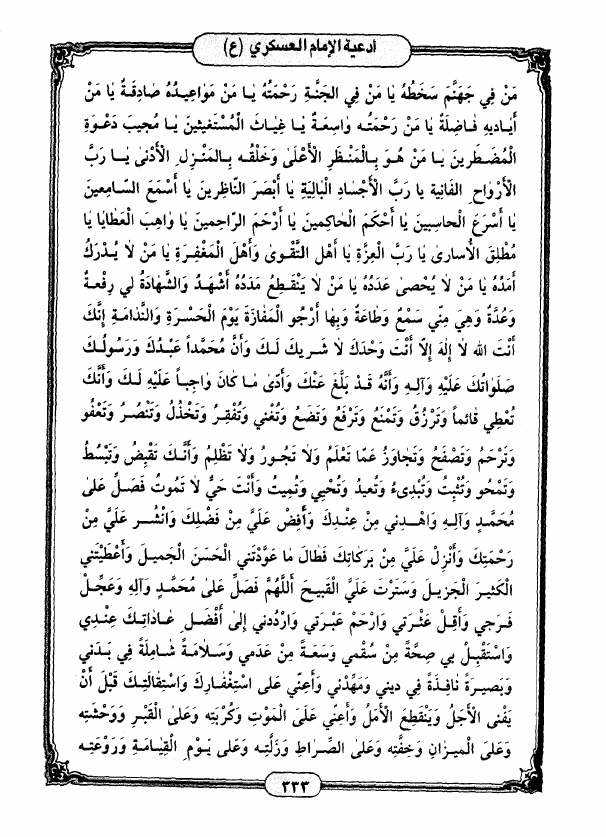 أدعية الإمام العسكري (ع)
مَنْ فِي جَهَنَّمَ سَخَطُهُ يٰا مَنْ فِي الجَنَّةِ رَحْمَتُهُ يٰا مَنْ مَوٰاعِيدُهُ صٰادِقَةٌ يٰا مَنْ
أَيٰادِيهِ فٰاضِلَةٌ يٰا مَنْ رَحْمَتُه وٰاسِعَةٌ يٰا غِيٰاثَ الْمُسْتَغيثينَ يٰا مُجيبَ دَعْوَةِ
الْمُضْطَرينَ يٰا مَنْ هُوَ بِالْمَنْظَرِ الْأَعْلىٰ وَخَلْقُه بِالمَنْزِلِ الْأَدْنىٰ يٰا رَبَّ
الْأَرْوٰاحِ الفٰانِيَةِ يٰا رَبَّ الْأَجْسٰادِ البٰالِيَةِ يٰا أَبْصَرَ النّٰاظِرينَ يٰا أَسْمَعَ السّٰامِعينَ
يٰا أَسْرَعَ الْحٰاسِبينَ يٰا أَحْكَمَ الْحٰاكِمينَ يٰا أَرْحَمَ الرّٰاحِمينَ يٰا وٰاهِبَ العَطٰايٰا يٰا
مُطْلِقَ الْأُسٰارىٰ يٰا رَبَّ العِزَّةِ يٰا أَهْلَ التَّقْوىٰ وَأَهْلَ الْمَغْفِرَةِ يٰا مَنْ لٰا يُدْرَكُ
أَمَدُهُ يٰا مَنْ لٰا يُحْصىٰ عَدَدُهُ يٰا مَنْ لٰا يَنْقَطِعُ مَدَدُهُ أَشْهَدُ وَالشَّهٰادَةُ لي رِفْعَةٌ
وَعُدَّةٌ وَهِيَ مِنّي سَمْعٌ وَطٰاعَةٌ وَبِهٰا أَرْجُو الْمَفٰازَةَ يَوْمَ الْحَسْرَةِ وَالنَّدٰامَةِ إِنَّكَ
أَنْتَ اللّٰه لٰا إِلٰهَ إِلّٰا أَنْتَ وَحْدَكَ لٰا شَريكَ لَكَ وَأَنَّ مُحَمَّداً عَبْدُكَ وَرَسُولُكَ
صَلَوٰاتُكَ عَلَيْهِ وَآلِهِ وَأَنَّهُ قَدْ بَلَّغَ عَنْكَ وَأَدّىٰ مٰا كٰانَ وٰاجِباً عَلَيْهِ لَكَ وَأَنَّكَ
تُعْطِي دٰائِماً وَتَرْزُقُ وَتَمْنَعُ وَتَرْفَعُ وَتَضَعُ وَتُغْني وَتُفْقِرُ وَتَخْذُلُ وَتَنْصُرُ وَتَعْفُو
وَتَرْحَمُ وَتَصْفَحُ وَتَجٰاوَزُ عَمّٰا تَعْلَمُ وَلٰا تَجُورُ وَلٰا تَظْلِمُ وَأَنَّكَ تَقْبِضُ وَتَبْسُطُ
وَتَمْحُو وَتُثْبِتُ وَتُبْدِىءُ وَتُعيدُ وَتُحْيي وَتُميتُ وَأَنْتَ حَيٌّ لٰا تَمُوتُ فَصَلِّ عَلىٰ
مُحَمَّدٍ وَآلِهِ وَاهْدِني مِنْ عِنْدِكَ وَأَفِضْ عَلَيَّ مِنْ فَضْلِكَ وَانْشُر عَلَيَّ مِنْ
رَحْمَتِكَ وَأَنْزِلْ عَلَيَّ مِنْ بَرَكٰاتِكَ فَطٰالَ مٰا عَوَّدْتَني الْحَسَنَ الْجَميلَ وَأَعْطَيْتَني
الْكَثيرَ الْجَزيلَ وَسَتَرْتَ عَلَيَّ الْقَبيحَ أَللّٰهُمَّ فَصَلِّ عَلىٰ مُحَمَّدٍ وَآلِهِ وَعَجِّلْ
فَرَجي وَأَقِلْ عَثْرَتي وَارْحَمْ عَبْرَتي وَارْدُدْني إِلىٰ أَفْضَلِ عٰادٰاتِكَ عِنْدِي
وَاسْتَقْبِلْ بي صِحَّةً مِنْ سُقْمي وَسَعَةً مِنْ عَدَمي وَسَلٰامَةً شٰامِلَةً فِي بَدَني
وَبَصيرَةً نٰافِذَةً فِي ديني وَمَهِّدْني وَأَعِنّي عَلىٰ اسْتِغْفٰارِكَ وَاسْتِقٰالَتِكَ قَبْلَ أَنْ
يَفْنى الْأَجَلُ وَيَنْقَطِعَ الْأَمَلُ وَأَعِنّي عَلَىٰ الْمَوْتِ وَكُرْبَتِه وَعَلىٰ القَبْرِ وَوَحْشَتِه
وَعَلىٰ الْميزٰانِ وَخِفَّتِه وَعَلىٰ الصِّرٰاطِ وَزَلَّتِه وَعَلىٰ يَوْمِ القِيٰامَةِ وَرَوْعَتِه
٢٣٣